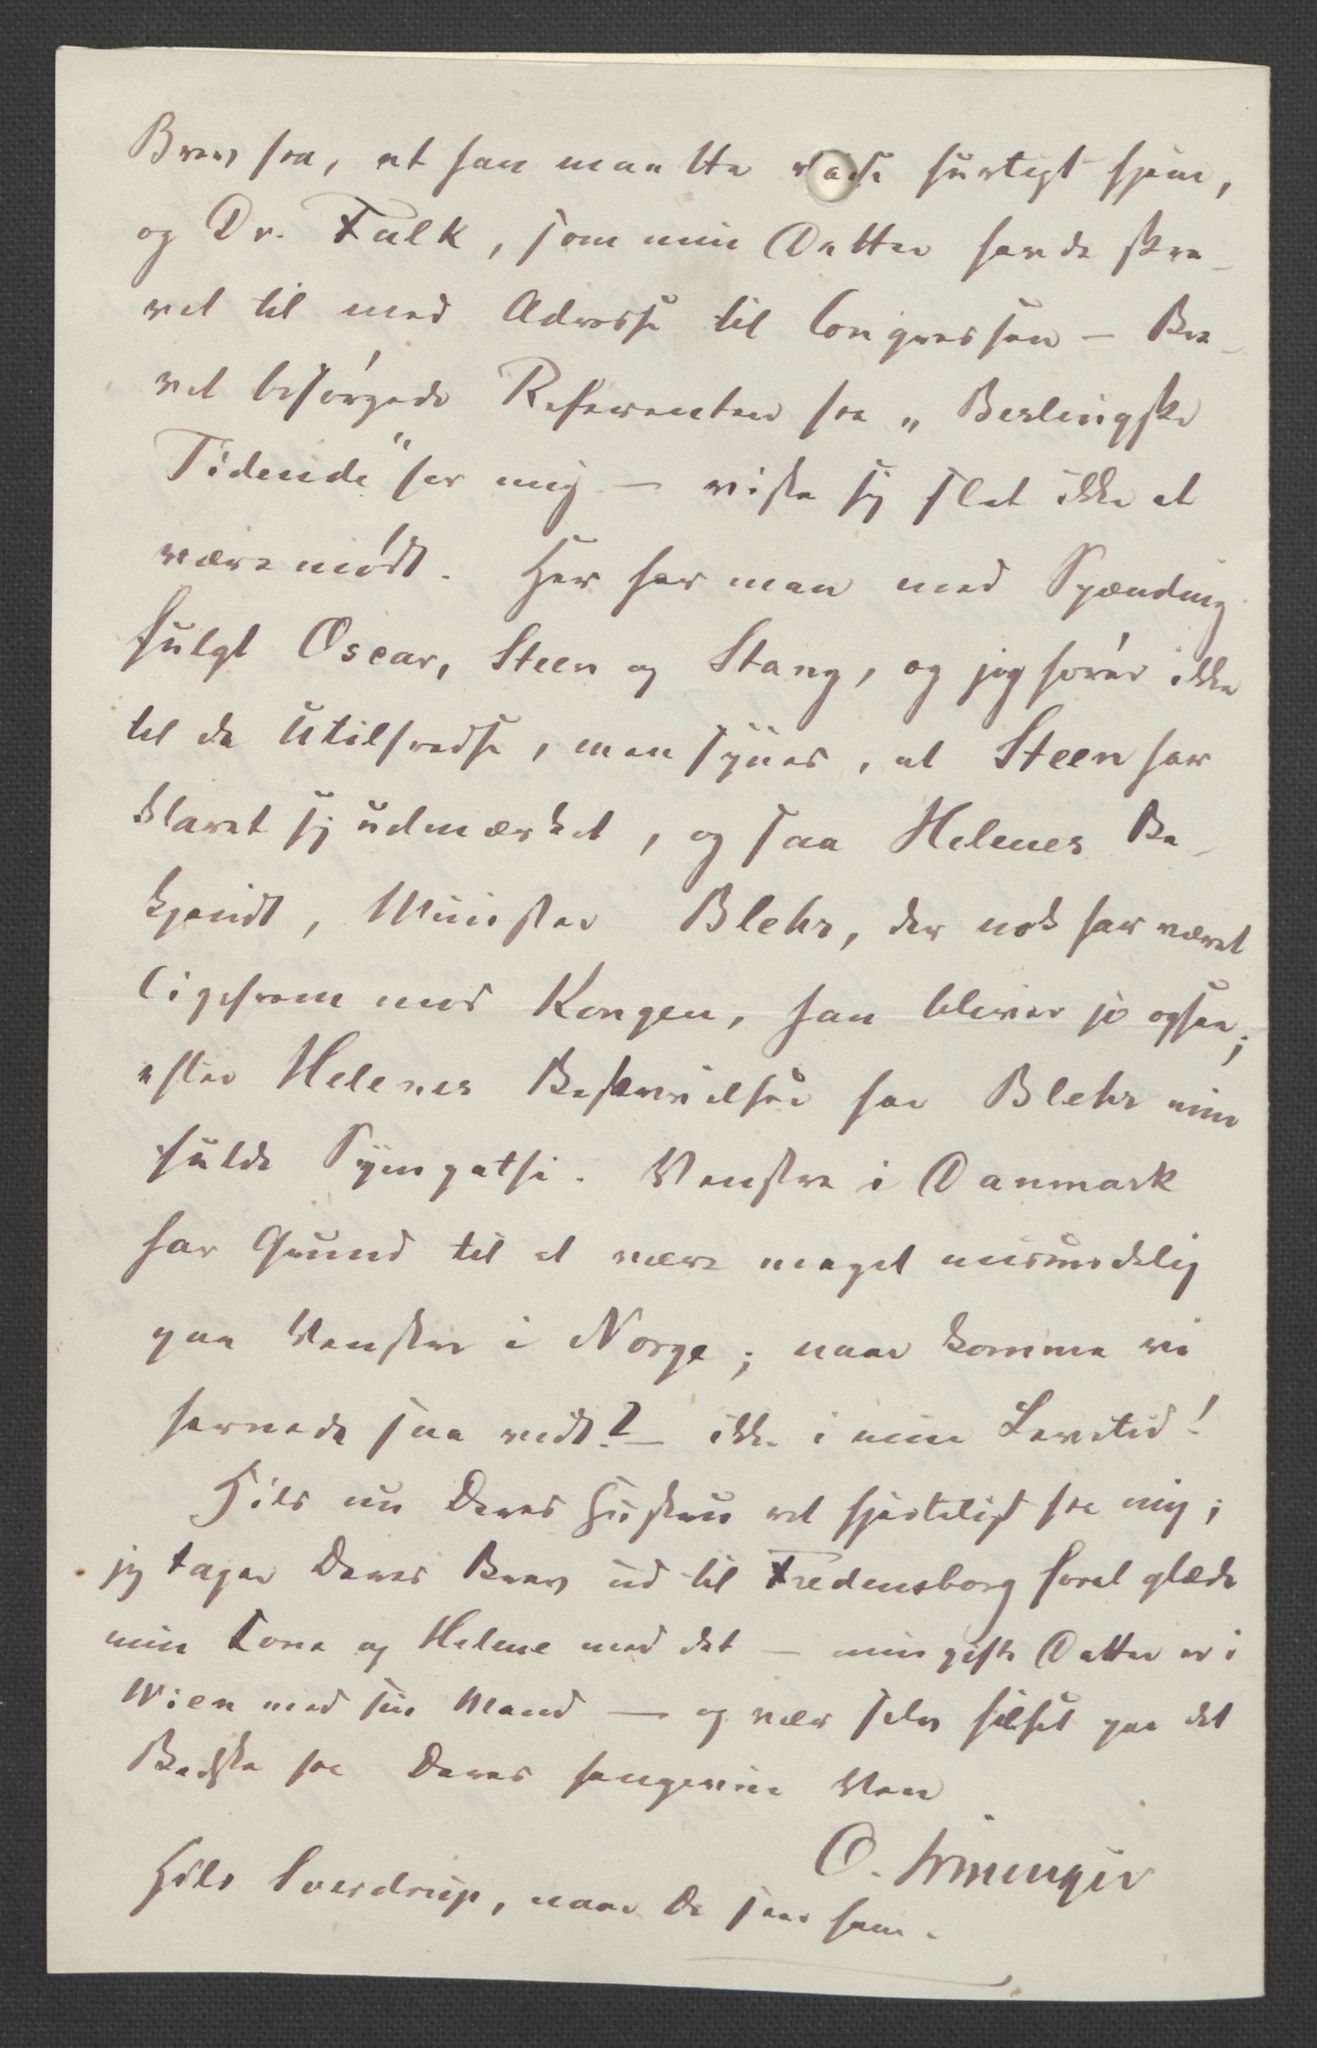 Brev fra, at han maatte rejse hurtigt hjem,
og Dr. Falk, som min Datter havde skre-
vet til med Adresse til Congressen — Bre-
vet besørgede Referenten fra „Berlingske
Tidende“ for mig — viste sig slet ikke at
være mødt. Her har man med Spænding
fulgt Oscar, Steen og Stang, og jeg hører ikke
til de utilfredse, men synes, at Steen har
klaret sig udmærket, og saa Helenes Be-
kjendt, Minister Blehr, der nok har været
ligefrem mod Kongen, han bliver jo ogsaa;
efter Helenes Beskrivelse har Blehr min
fulde Sympathi. Venstre i Danmark
har Grund til at være meget misundelig
paa Venstre i Norge; naar komme vi
hernede saa vidt? — ikke i min Levetid!
Hils nu Deres Hustru ret hjerteligt fra mig;
jeg tager Deres Brev ud til Fredensborg for at glæde
min Kone og Helene med det — min gifte Datter er i
Wien med sin Mand — og vær selv hilset paa det
Bedste fra Deres hengivne Ven
O. Irminger
Hils Sverdrup, naar De seer ham.